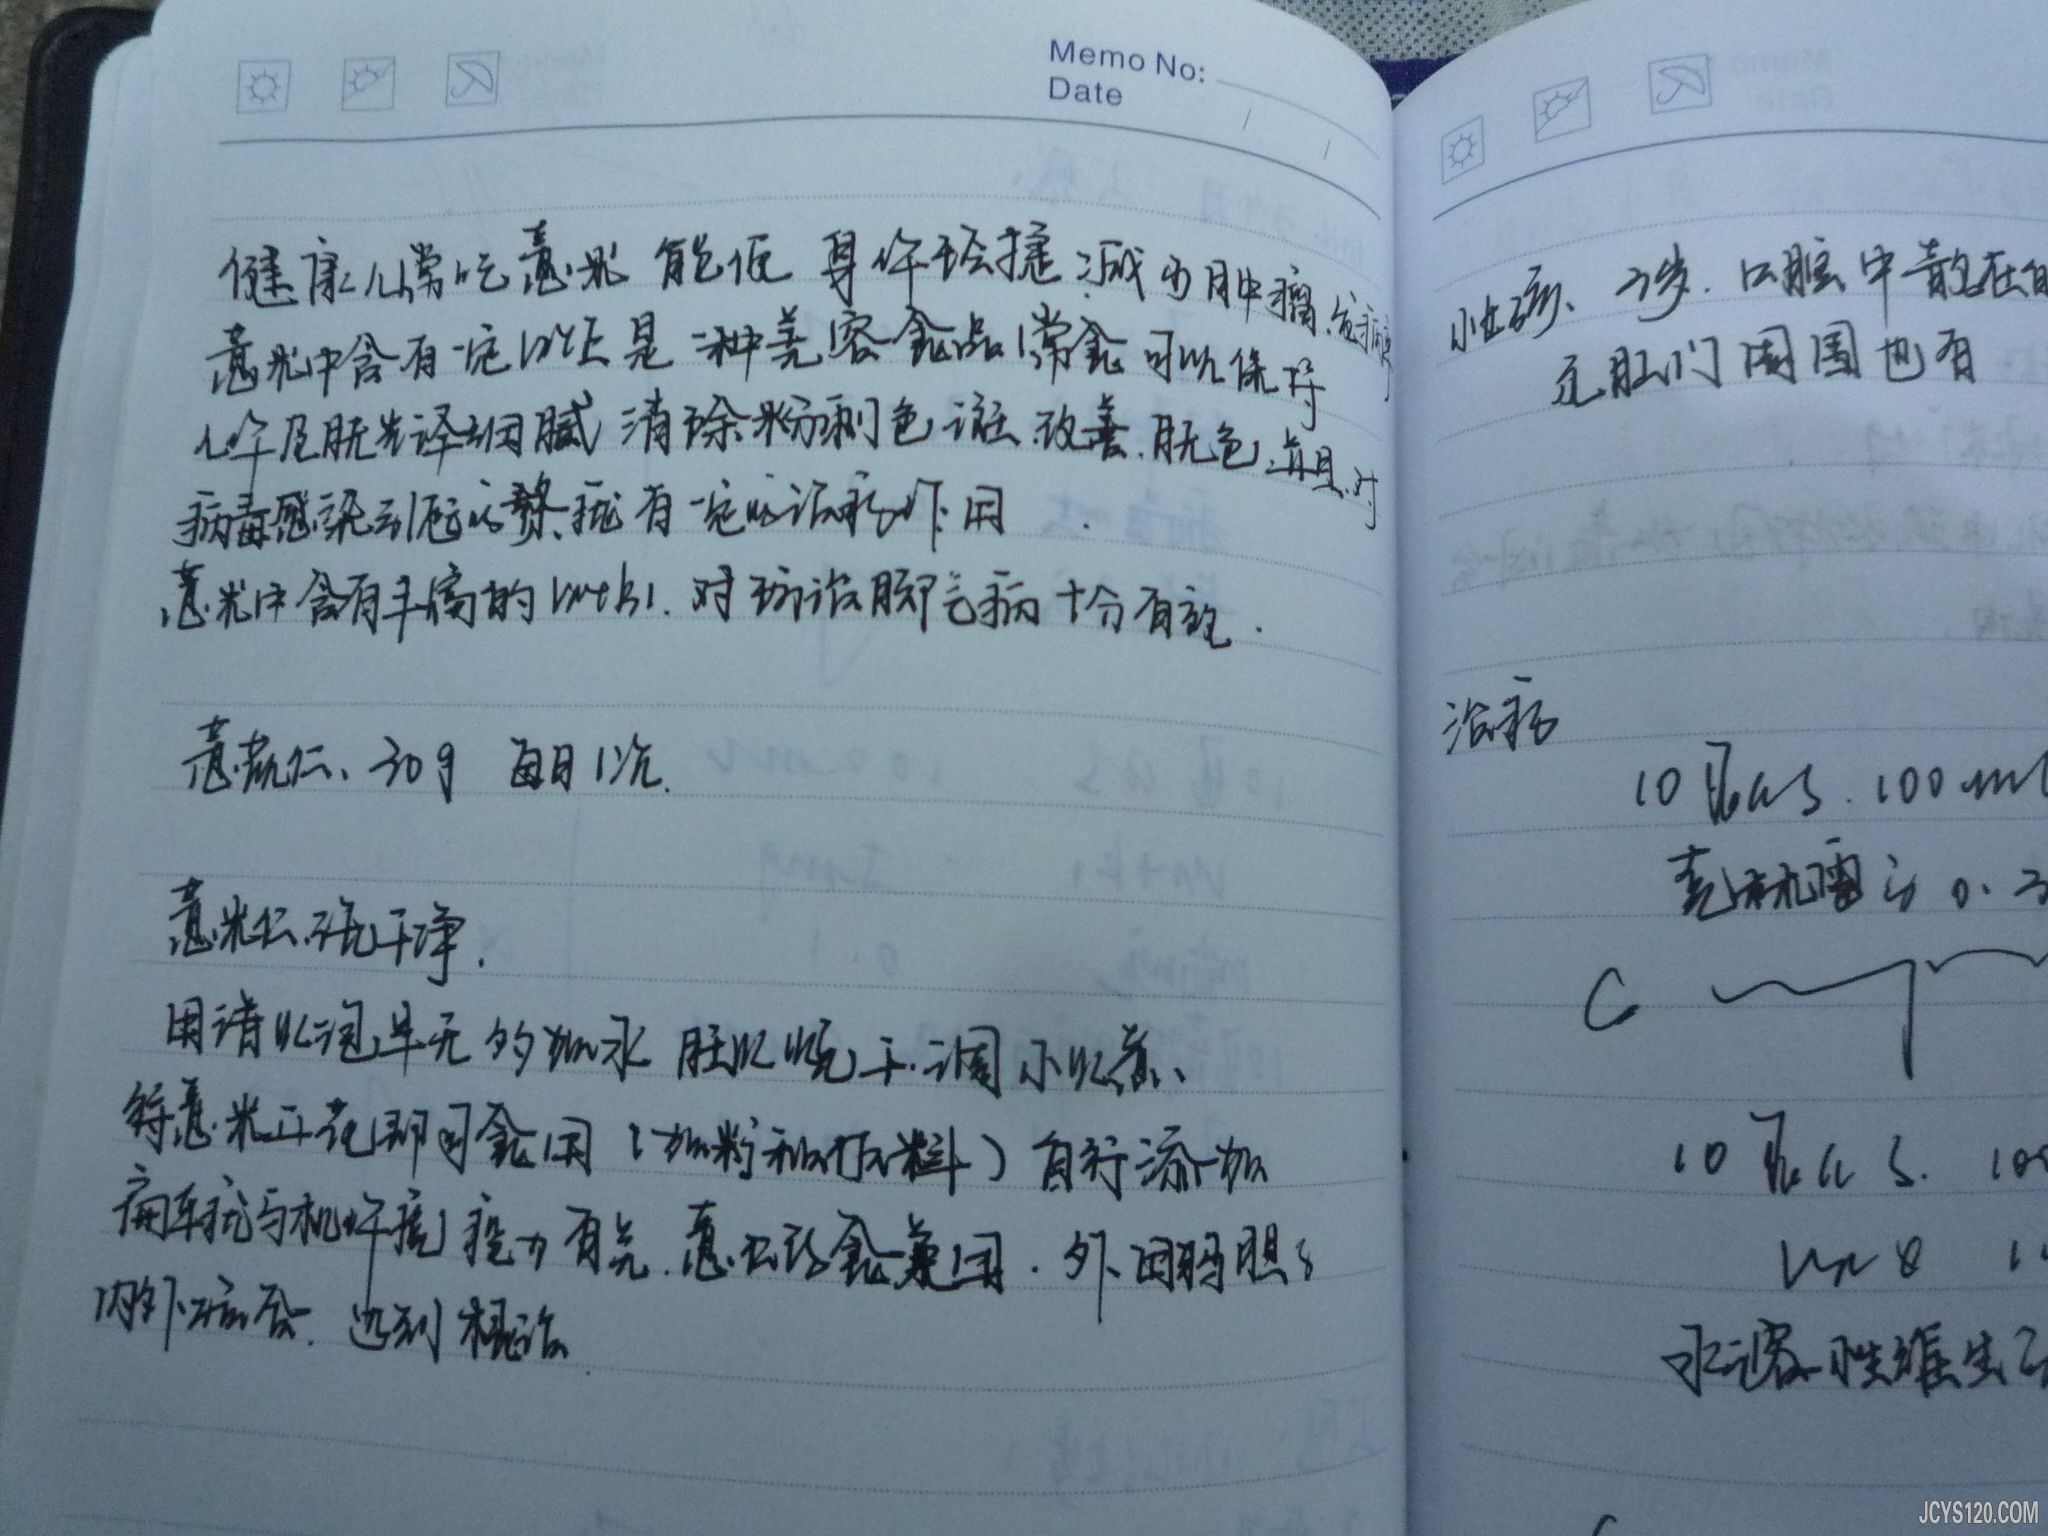 Memo No:
Date
健康人常吃薏米 能使 身体轻捷 减少肿瘤发病率
薏米中含有一定的VE 是一种美容食品 常食可以保持
人体皮肤光泽细腻 消除粉刺色斑 改善肤色 并且对
病毒感染引起的赘疣有一定的治疗作用
薏米中含有丰富的VitB1. 对防治脚气病十分有效.
薏苡仁、30g 每日1次.
薏米仁 洗干净.
用清水泡 加水 旺火烧干.调小火煮、
待薏米开花即可食用(加粉和佐料)自行添加
扁平疣与机体 力有关. 薏 食兼用. 外用鸦胆子
内外结合. 达到根治.
小女孩、2岁. 口腔中散在的
元肛门周围也有
治疗
10%GS. 100ml
克林霉 0.3
C
10%GS. 100
水溶性维生
JCYS120.COM